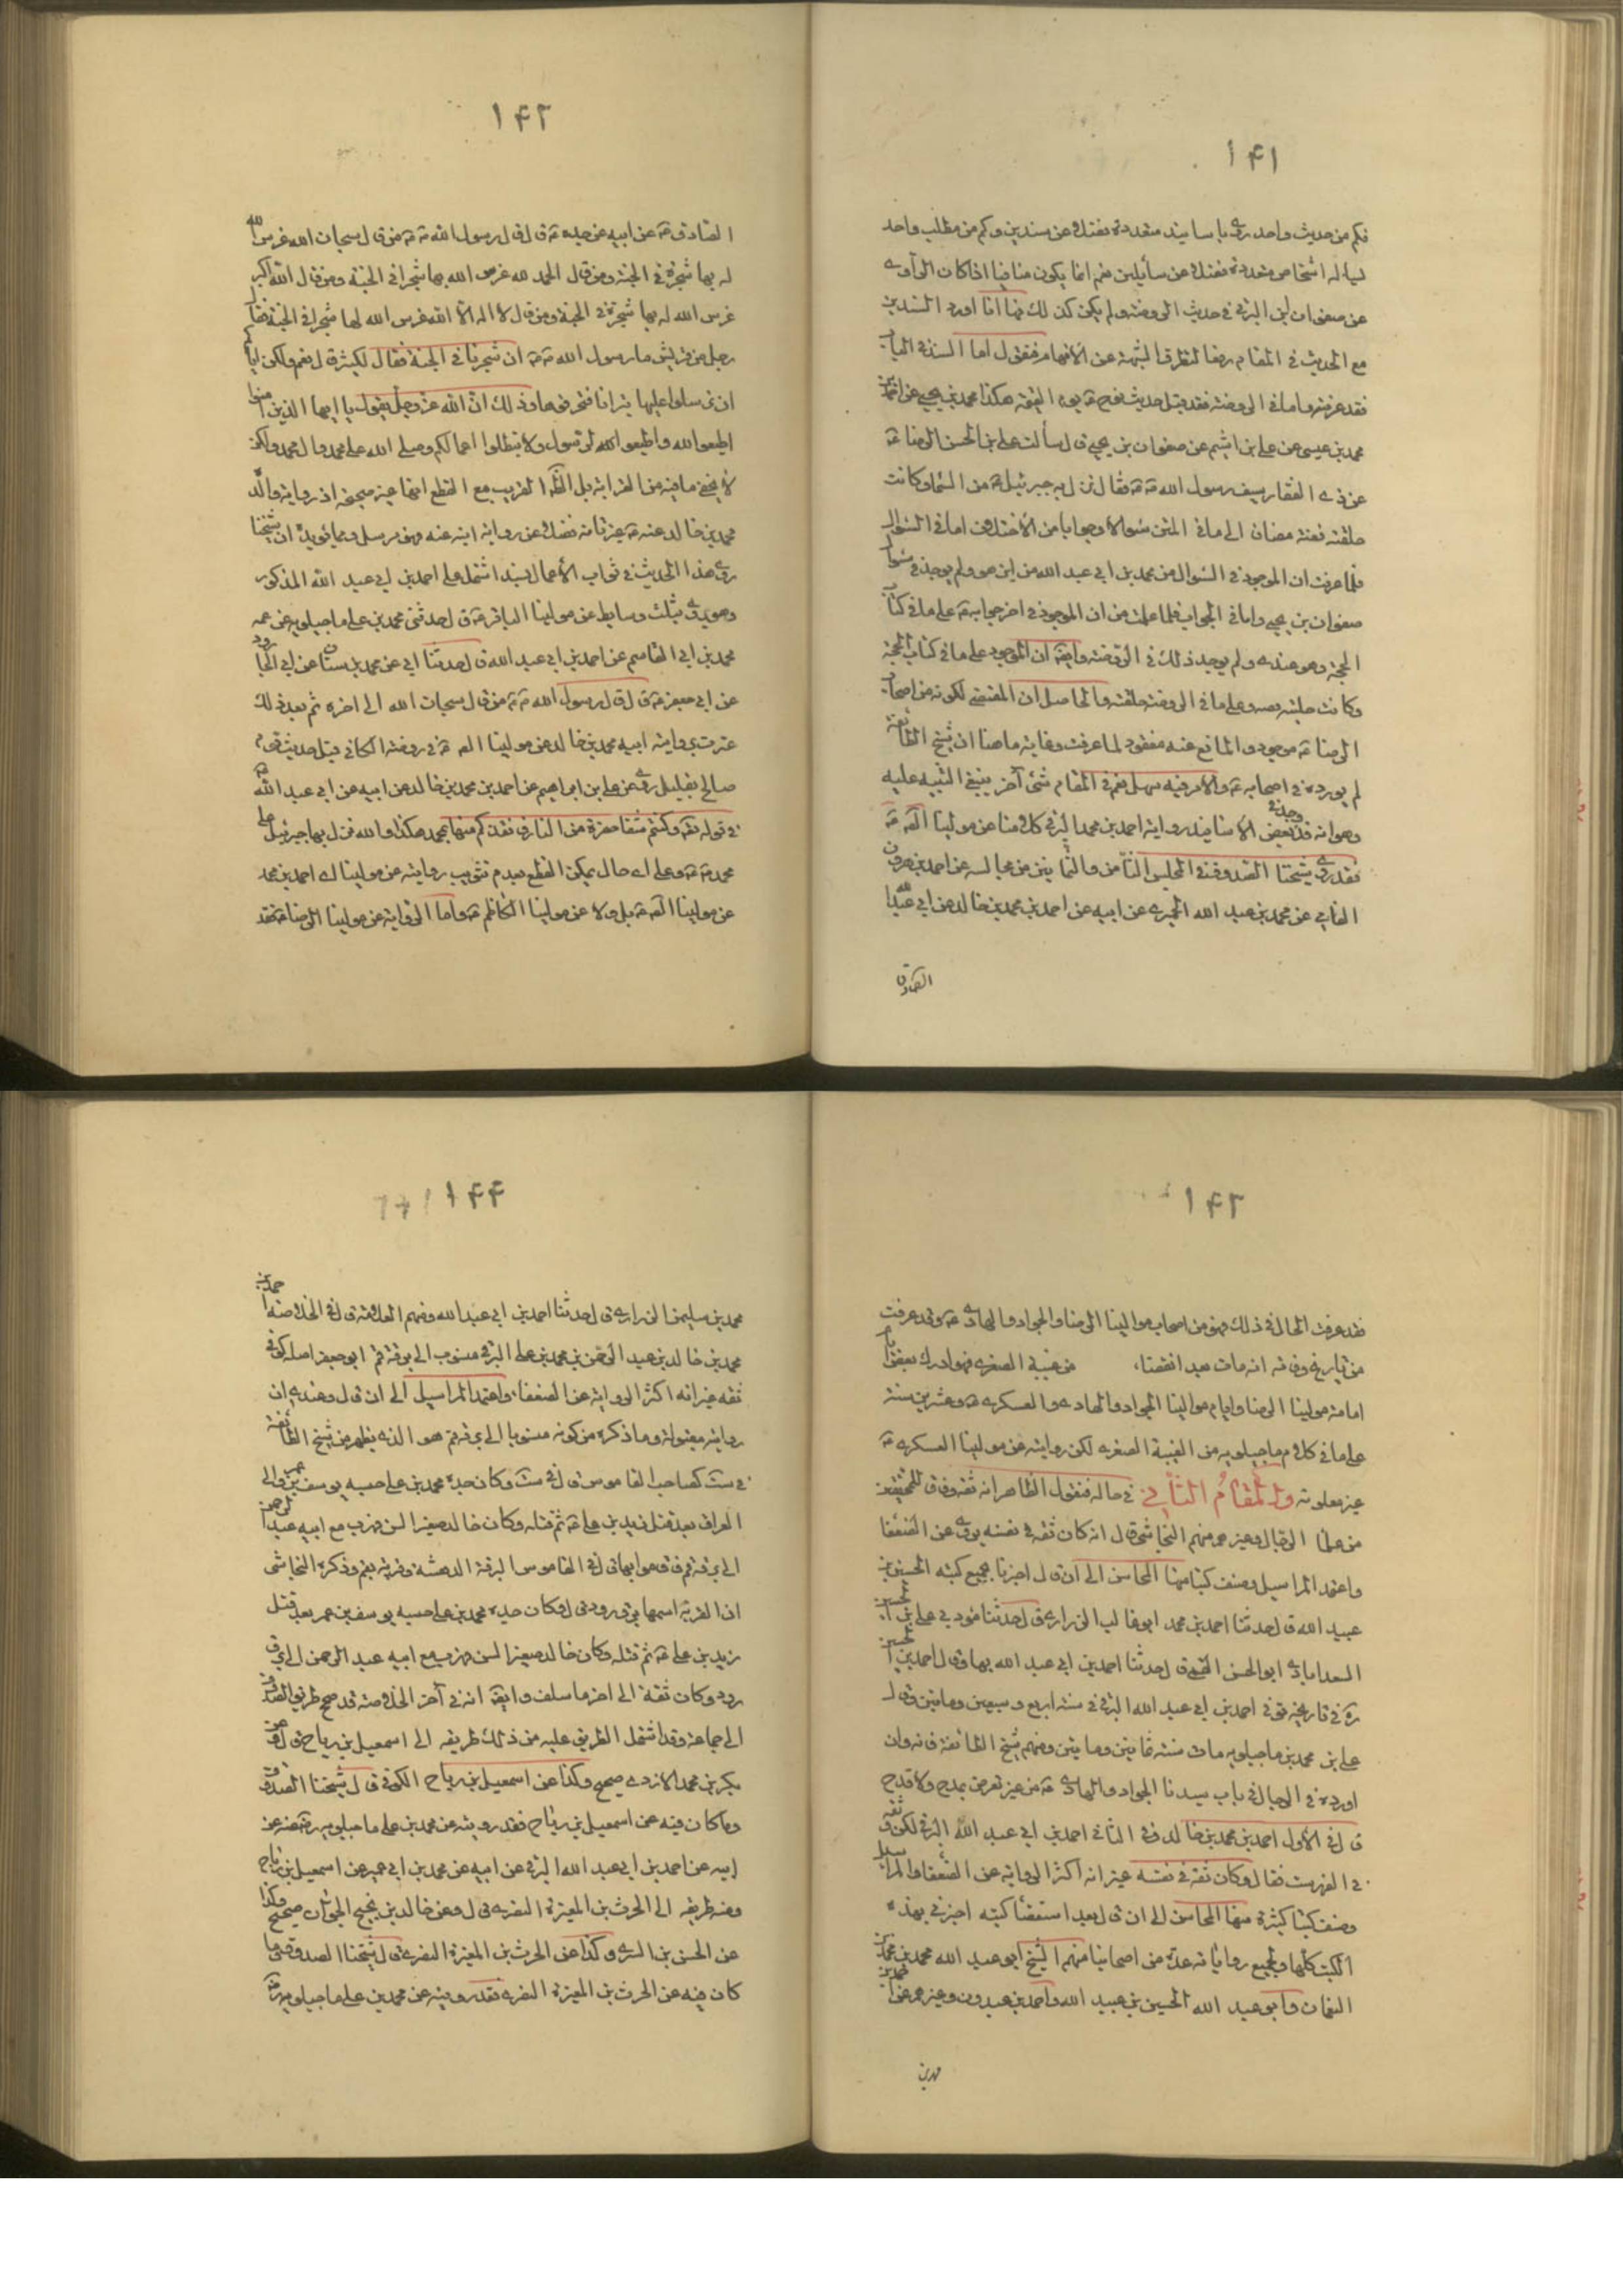 ۱۴۱
فكم من حديث واحد روى باسانيد متعددة فضلا عن سندين وكم من مطلب واحد
يسأله اشخاص متعددة فضلا عن سائلين نعم انما يكون منافيا اذا كان الراوى
عن صفوان ابن البرقى فى حديث الروضة ولم يكن كذلك فيما اذا اورد السندين
مع الحديث فى المقام دفعا لتطرق الشبهة عن الأفهام فنقول اما السند فى العيا
فقد عرفته واما فى الروضة فقد قبل حديث نوح ع يوم القيمة هكذا محمد بن يحيى عن احمد بن
محمد بن عيسى عن على بن اشيم عن صفوان بن يحيى قال سألت على بن الحسن الرضا ع
عن ذى الفقار سيف رسول الله ص فقال نزل به جبرئيل ع من السماء وكانت
حلقته فضة مضافا الى ما فى المتن سؤالا وجوابا من الأختلاف اما فى السؤال
فلما عرفت ان الموجود فى السؤال من محمد بن ابى عبد الله من اين هو ولم يوجد فى سؤال
صفوان بن يحيى واما فى الجواب فلما علمت من ان الموجود فى اخر جوابه ع على ما فى كتاب
الحجة وهو عندى ولم يوجد ذلك فى الروضة وايضا ان الموجود على ما فى كتاب الحجة
وكانت حليته وعلى ما فى الروضة حلقته والحاصل ان المقتضى لكونه من اصحاب
الرضا ع موجود والمانع عنه مفقود لما عرفت وغاية ما هنا ان شيخ الطائفة
لم يورده فى اصحابه ع والأمر فيه سهل نعم فى المقام شئ آخر ينبغى التنبيه عليه
وهو انه قد وجد فى بعض الأسانيد رواية احمد بن محمد البرقى كلاما عن مولينا الصـ ع
فقد روى شيخنا الصدوق فى المجلس الثامن والثمانين من مجالسه عن احمد بن هرون
الفامى عن محمد بن عبد الله الحميرى عن ابيه عن احمد بن محمد بن خالد عن ابى عبد الله
الصادق
۱۴۲
الصادق ع عن ابيه عن جده ع قال قال رسول الله ص من قال سبحان الله غرس الله
له بها شجرة فى الجنة ومن قال الحمد لله غرس الله بها شجرا فى الجنة ومن قال الله اكبر
غرس الله له بها شجرة فى الجنة ومن قال لا اله الا الله غرس الله لها شجرا فى الجنة فقال
رجل من قريش يا رسول الله ص ان شجرنا فى الجنة فقال لكثير قال نعم ولكن اياكم
ان ترسلوا عليها نيرانا فتحرقوها وذلك ان الله عز وجل يقول يا ايها الذين امنوا
اطيعوا الله واطيعوا الرسول ولا تبطلوا اعمالكم وصلى الله على محمد وال محمد ولكن
لا يخفى ما فيه من الغرابة بل الظاهر القريب مع القطع انها غير صحيحة اذ رواية والد
محمد بن خالد عنه ع غير ثابتة فضلا عن رواية ابنه عنه فهو مرسل ومما يؤيد ان شيخنا
روى هذا الحديث فى ثواب الأعمال بسند اشتمل على احمد بن ابى عبد الله المذكور
وهو يروى بثلث وسايط عن مولينا الباقر ع قال حدثنى محمد بن على ماجيلويه عن عمه
محمد بن ابى القاسم عن احمد بن ابى عبد الله قال حدثنا ابى عن محمد بن سنان عن ابى الجارود
عن ابى جعفر ع قال قال رسول الله ص من قال سبحان الله الى اخره ثم بعد ذلك
عثرت برواية ابيه محمد بن خالد عن مولينا الصـ ع فى روضة الكافى قبل حديث قوم
صالح بقليل روى عن على بن ابراهيم عن احمد بن محمد بن خالد عن ابيه عن ابى عبد الله ع
فى قوله تعـ وكنتم على شفا حفرة من النار فانقذكم منها بمحمد هكذا والله نزل بها جبرئيل على
محمد ص وعلى اى حال يمكن القطع بعدم تقريب روايته عن مولينا اى احمد بن محمد
عن مولينا الصـ ع بل ولا عن مولينا الكاظم ع واما الرواية عن مولينا الرضا ع فقد
۱۴۳
فقد عرفت الحال فى ذلك فهو من اصحاب موالينا الرضا والجواد والهادى ع وقد عرفت
من تاريخ وفاته انه مات بعد انقضاء من غيبة الصغرى فهو ادرك بعض ايام
امامة مولينا الرضا وايام موالينا الجواد والهادى والعسكرى ع وعشرين سنة
على ما فى كلام ماجيلويه من الغيبة الصغرى لكن روايته عن مولينا العسكرى ع
غير معلومة والمقام الثانى فى حاله فنقول الظاهر انه ثقة وفاقا للمحققين
من علماء الرجال وغيرهم منهم النجاشى قال انه كان ثقة فى نفسه يروى عن الضعفاء
واعتمد المراسيل وصنف كتبا منها المحاسن الى ان قال اخبرنا بجميع كتبه الحسين بن
عبيد الله قال حدثنا احمد بن محمد ابو غالب الزرارى قال حدثنا مؤدبى على بن الحسين
السعدابادى ابو الحسن القمى قال حدثنا احمد بن ابى عبد الله بها وقال احمد بن الحسين
ره فى تاريخه توفى احمد بن ابى عبد الله البرقى فى سنة اربع وسبعين ومأتين وقال
على بن محمد بن ماجيلويه مات سنة ثمانين ومأتين ومنهم شيخ الطائفة فانه وان
اورده فى الرجال فى باب سيدنا الجواد والهادى ع من غير تعرض بمدح ولا قدح
قال فى الأول احمد بن محمد بن خالد وفى الثانى احمد بن ابى عبد الله البرقى لكن وثقه
فى الفهرست فقال وكان ثقة فى نفسه غير انه اكثر الرواية عن الضعفاء والمراسيل
وصنف كتبا كثيرة منها المحاسن الى ان قال بعد استقصاء كتبه اخبرنى بهذه
الكتب كلها وبجميع رواياته عدة من اصحابنا منهم الشيخ ابو عبد الله محمد بن محمد بن
النعمان وابو عبد الله الحسين بن عبيد الله واحمد بن عبدون وغيرهم عن احمد بن
محمد بن
۱۴۴
محمد بن سليمن الزرارى قال حدثنا احمد بن ابى عبد الله ومنهم العلامة قال فى الخلاصة احمد بن
محمد بن خالد بن عبد الرحمن بن محمد بن على البرقى منسوب الى برقة قم ابو جعفر اصله كوفى
ثقة غير انه اكثر الرواية عن الضعفاء واعتمد المراسيل الى ان قال وعندى ان
روايته مقبولة وما ذكره من كونه منسوبا الى برقة قم هو الذى يظهر من شيخ الطائفة
فى ست كصاحب القاموس قال فى ست وكان جده محمد بن على حبسه يوسف بن عمر والى
العراق بعد قتل زيد بن على ع ثم قتله وكان خالد صغير السن فهرب مع ابيه عبد الرحمن
الى برقة قم فاقاموا بها قال فى القاموس البرقة الدهشة وقرية بقم وذكره النجاشى
ان القرية اسمها برق رود قال وكان جده محمد بن على حبسه يوسف بن عمر بعد قتل
زيد بن على ع ثم قتله وكان خالد صغير السن فهرب مع ابيه عبد الرحمن الى برق
رود وكان ثقة الى اخر ما سلف وايضا انه فى آخر الخلاصة قد صحح طريق الصدوق
الى جماعة وقد اشتمل الطريق عليه من ذلك طريقه الى اسمعيل بن رباح قال وعن
بكر بن محمد الازدى صحيح وكذا عن اسمعيل بن رباح الكوفى قال شيخنا الصدوق
وما كان فيه عن اسمعيل بن رباح فقد رويته عن محمد بن على ماجيلويه رضى عنه عن
ابيه عن احمد بن ابى عبد الله البرقى عن ابيه عن محمد بن ابى عمير عن اسمعيل بن رباح
ومنه طريقه الى الحرث بن المغيرة النصرى قال وعن خالد بن نجيح الجوان صحيح وكذا
عن الحسن بن السرى وكذا عن الحرث بن المغيرة النصرى قال شيخنا الصدوق وما
كان فيه عن الحرث بن المغيرة النصرى فقد رويته عن محمد بن على ماجيلويه رضه